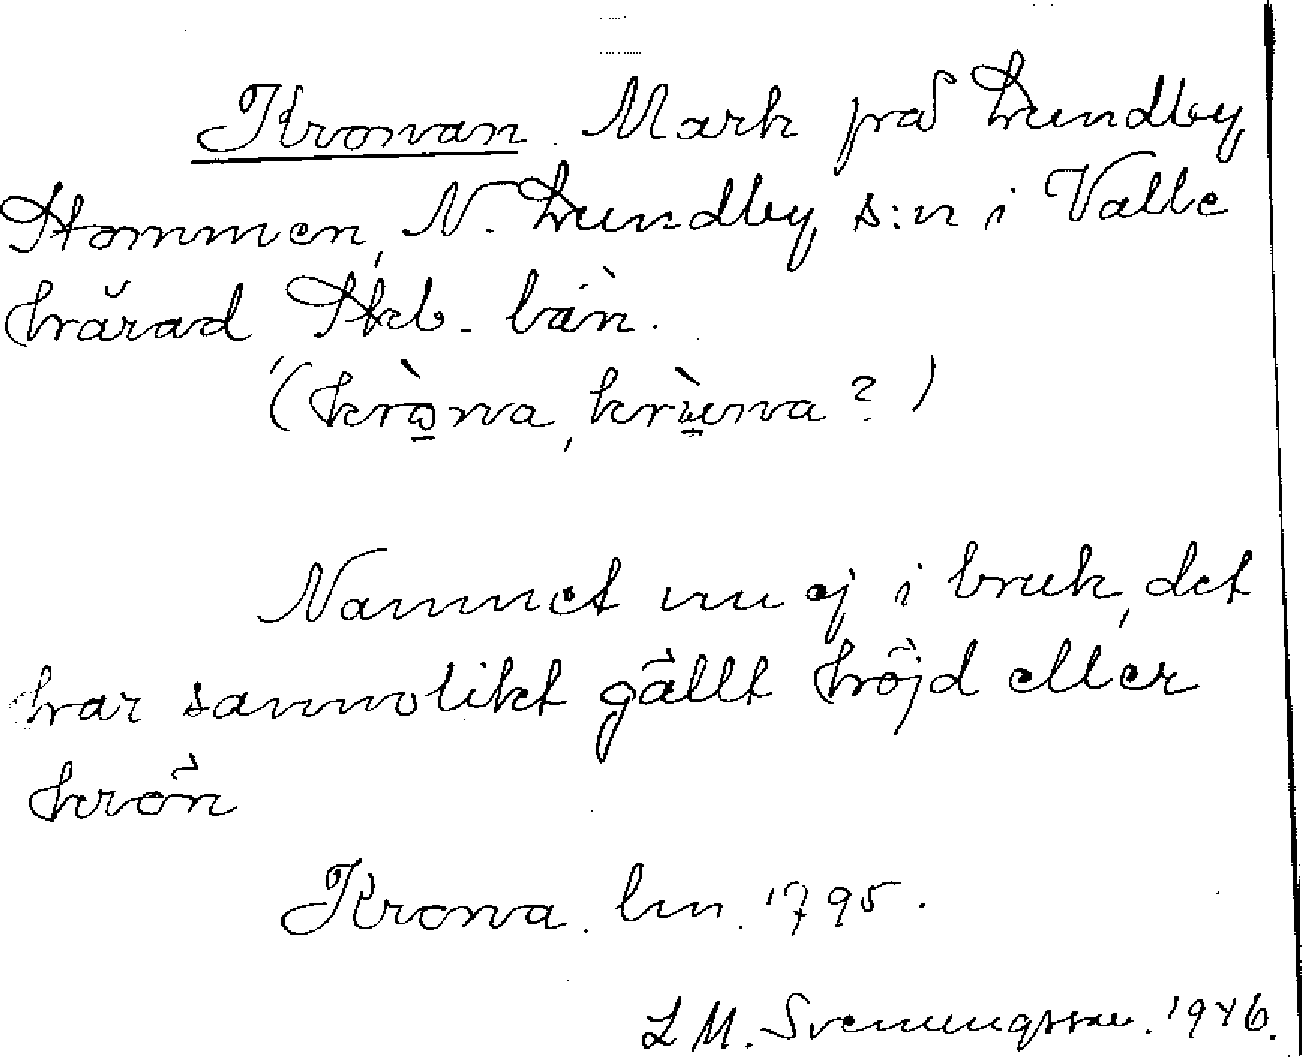 Kronan. Mark på Lundby,
Stommen, N. Lundby s:n i Valle
härad Skb. län.
(kròna, krùna?)
Namnet nu ej i bruk, det
har sannolikt gällt höjd eller
krön
Krona. lm. 1795.
L M. Svenungsson. 1946.